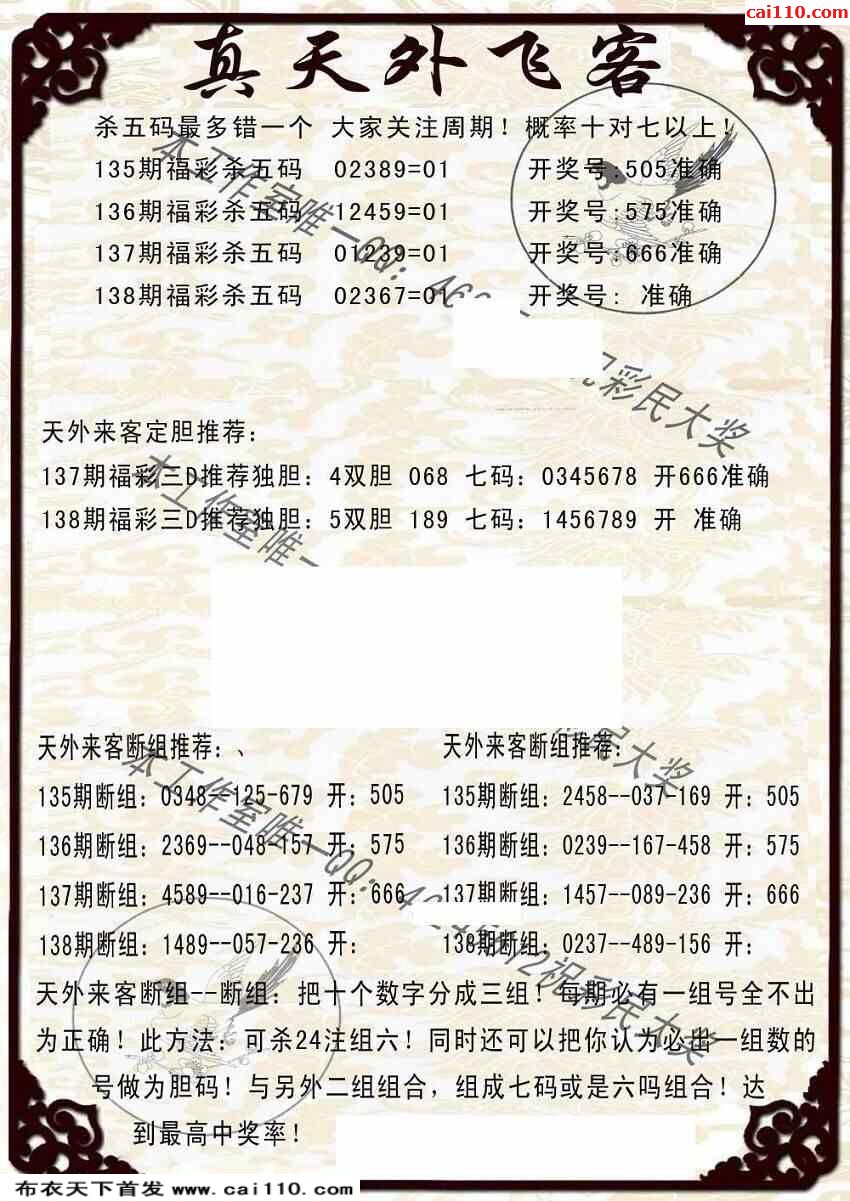 cai110.com
真天外飞客
杀五码最多错一个 大家关注周期！概率十对七以上！
135期福彩杀五码 02389=01 开奖号:505准确
136期福彩杀五码 12459=01 开奖号:575准确
137期福彩杀五码 01239=01 开奖号:666准确
138期福彩杀五码 02367=01 开奖号: 准确
天外来客定胆推荐：
137期福彩三D推荐独胆：4双胆 068 七码：0345678 开666准确
138期福彩三D推荐独胆：5双胆 189 七码：1456789 开 准确
天外来客断组推荐：、
135期断组：0348--125-679 开：505
136期断组：2369--048-157 开：575
137期断组：4589--016-237 开：666
138期断组：1489--057-236 开：
天外来客断组推荐：
135期断组：2458--037-169 开：505
136期断组：0239--167-458 开：575
137期断组：1457--089-236 开：666
138期断组：0237--489-156 开：
天外来客断组--断组：把十个数字分成三组！每期必有一组号全不出
为正确！此方法：可杀24注组六！同时还可以把你认为必出一组数的
号做为胆码！与另外二组组合，组成七码或是六吗组合！达
到最高中奖率！
本工作室唯一QQ：
彩民大奖
本工作室唯一
民大奖
本工作室唯一QQ：
祝彩民大奖
布衣天下首发 www.cai110.com